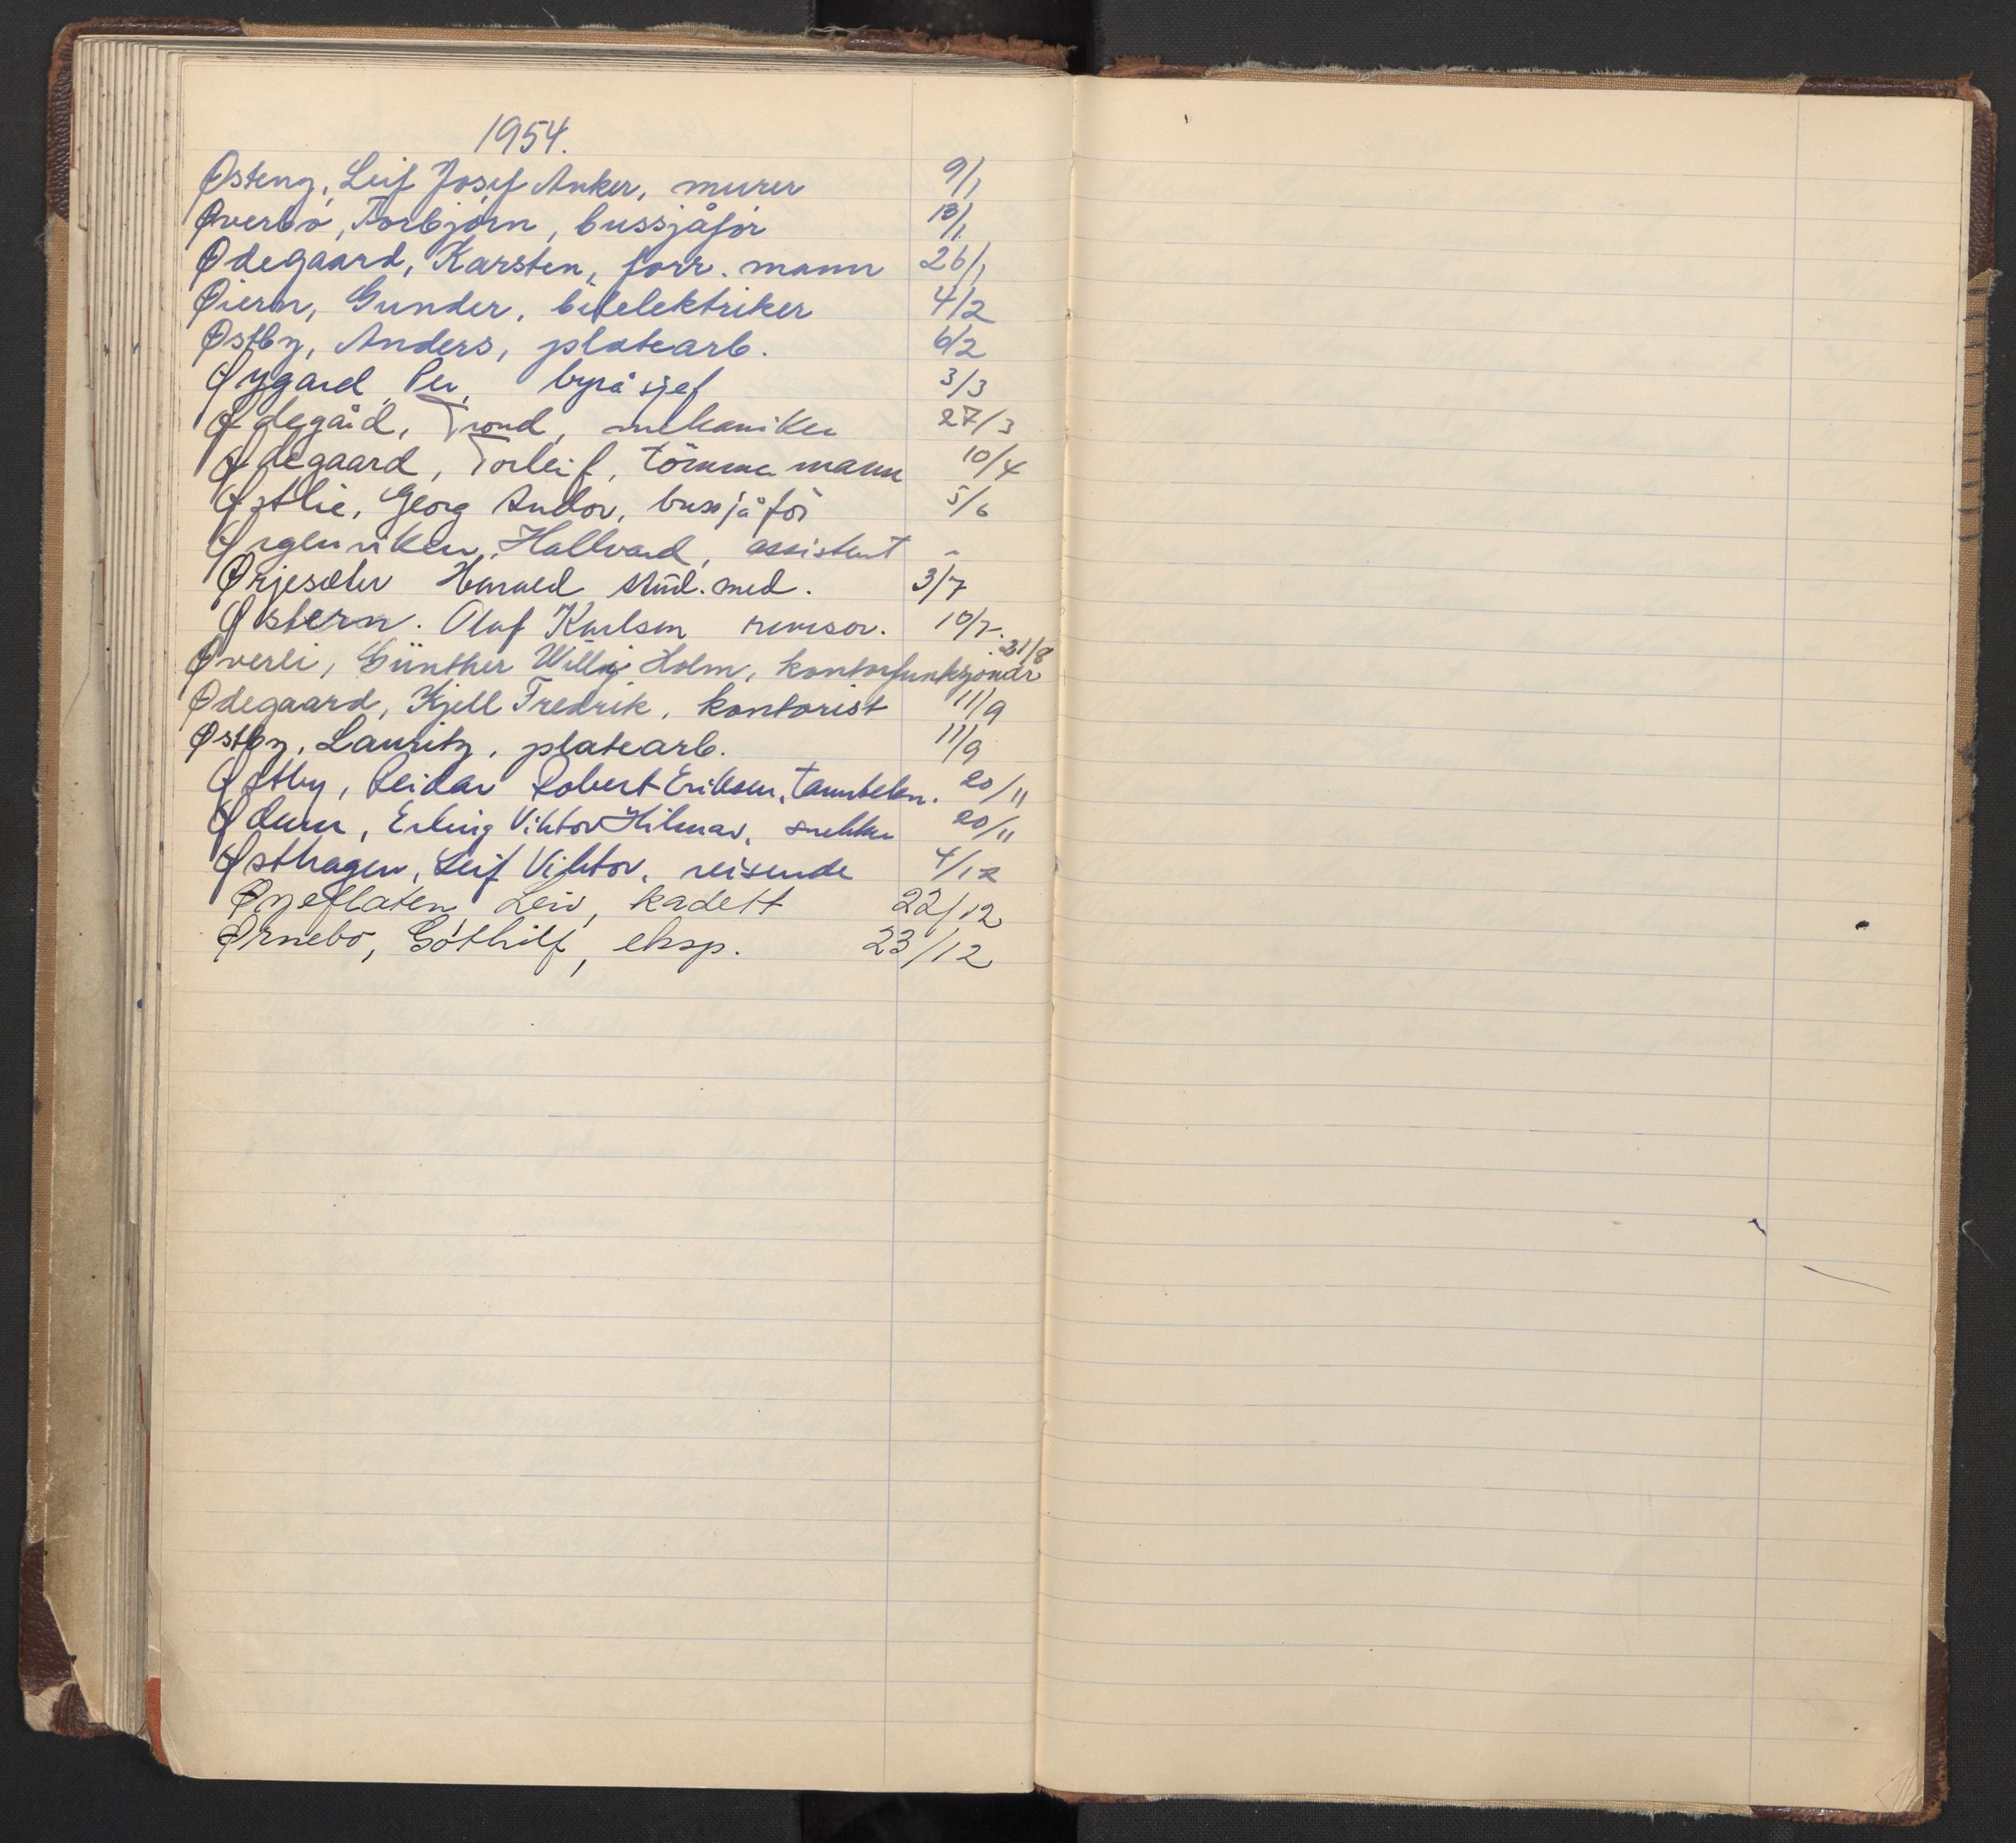 1954.
Østeng, Leif Josef Anker, murer 9/1
Øverbø, Torbjørn, bussjåfør 13/1
Ødegaard, Karsten, forr. mann 26/1
Øiern, Gunder, bilelektriker 4/2
Østby, Anders, platearb. 6/2
Øygard, Per, byråsjef 3/3
Ødegård, Trond, mekaniker 27/3
Ødegaard, Torleif, tömmermann 10/4
Østlie, Georg Andor, bussjåför 5/6
Hallvard, assistent -
Ørjesæter Harald stud. med. 3/7
Østern. Olaf Karlsen revisor. 10/7.
Øverli, Günther Willy Holm, kontorfunksjonær 21/8
Ødegaard, Kjell Fredrik, kontorist 11/9
Østby, Lauritz, platearb. 11/9
Østby, Reidar Robert Eriksen, tanntekn. 20/11
Ødum, Erling Viktor Hilmar, snekker 20/11
Østhagen, Leif Viktor, reisende 4/12
Øyeflaten, Leiv, kadett 22/12
Ørnebo, Gothilf, eksp. 23/12